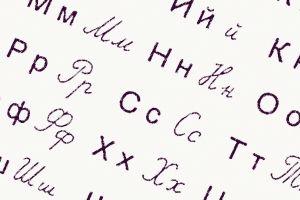 Мм Мм Нн Нн Оо
Рр Рр Сс Сс Тт
Фф Фф Хх Хх
Шш
Ий й